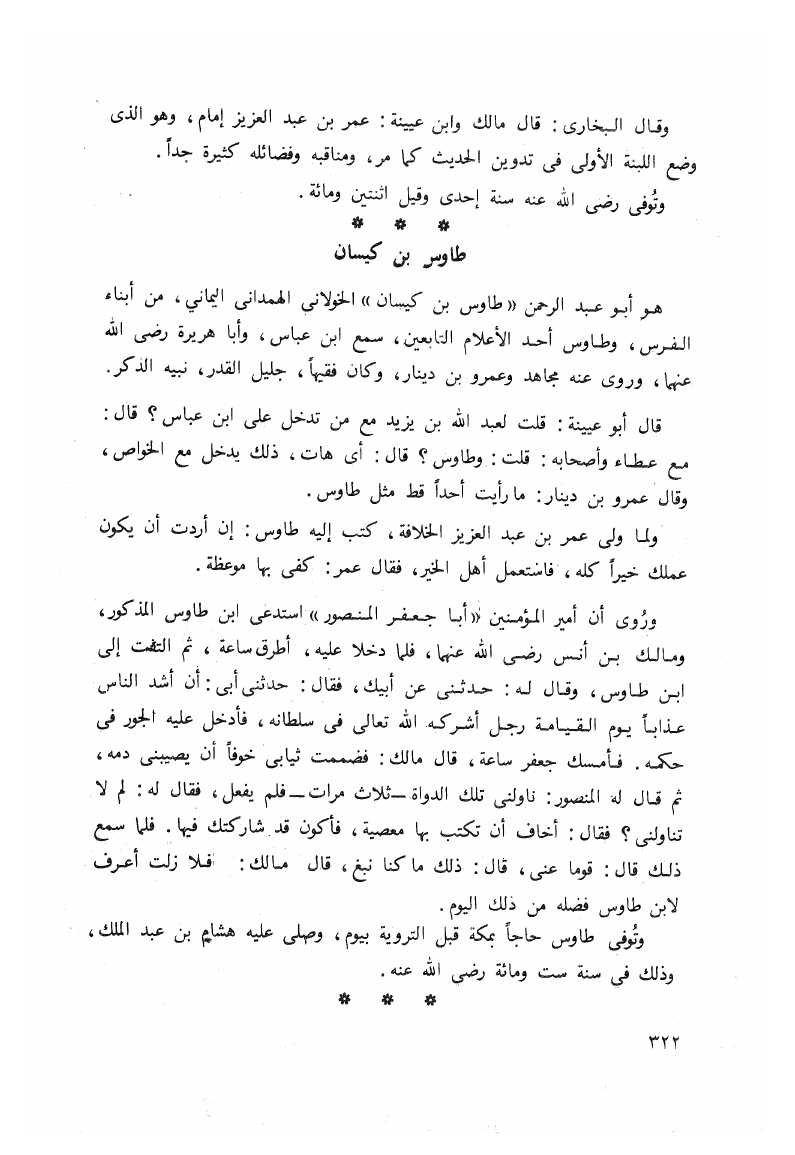 وقال البخارى: قال مالك وابن عيينة: عمر بن عبد العزيز إمام، وهو الذى
وضع اللبنة الأولى فى تدوين الحديث كما مر، ومناقبه وفضائله كثيرة جداً.
وتُوفى رضى الله عنه سنة إحدى وقيل اثنتين ومائة.
* * *
طاوس بن كيسان
هو أبو عبد الرحمن «طاوس بن كيسان» الخولانى الهمدانى اليماني، من أبناء
الفرس، وطاوس أحد الأعلام التابعين، سمع ابن عباس، وأبا هريرة رضى الله
عنهما، وروى عنه مجاهد وعمرو بن دينار، وكان فقيهاً، جليل القدر، نبيه الذكر.
قال أبو عيينة: قلت لعبد الله بن يزيد مع من تدخل على ابن عباس؟ قال:
مع عطاء وأصحابه: قلت: وطاوس؟ قال: أى هات، ذلك يدخل مع الخواص،
وقال عمرو بن دينار: ما رأيت أحداً قط مثل طاوس.
ولما ولى عمر بن عبد العزيز الخلافة، كتب إليه طاوس: إن أردت أن يكون
عملك خيراً كله، فاستعمل أهل الخير، فقال عمر: كفى بها موعظة.
ورُوى أن أمير المؤمنين «أبا جعفر المنصور» استدعى ابن طاوس المذكور،
ومالك بن أنس رضى الله عنهما، فلما دخلا عليه، أطرق ساعة، ثم التفت إلى
ابن طاوس، وقال له: حدثنى عن أبيك، فقال: حدثنى أبى: أن أشد الناس
عذاباً يوم القيامة رجل أشركه الله تعالى فى سلطانه، فأدخل عليه الجور فى
حكمه. فأمسك جعفر ساعة، قال مالك: فضممت ثيابى خوفاً أن يصيبنى دمه،
ثم قال له المنصور: ناولنى تلك الدواة ـ ثلاث مرات ـ فلم يفعل، فقال له: لم لا
تناولنى؟ فقال: أخاف أن تكتب بها معصية، فأكون قد شاركتك فيها. فلما سمع
ذلك قال: قوما عنى، قال: ذلك ما كنا نبغ، قال مالك: فلا زلت أعرف
لابن طاوس فضله من ذلك اليوم.
وتُوفى طاوس حاجاً بمكة قبل التروية بيوم، وصلى عليه هشام بن عبد الملك،
وذلك فى سنة ست ومائة رضى الله عنه.
* * *
٣٢٢